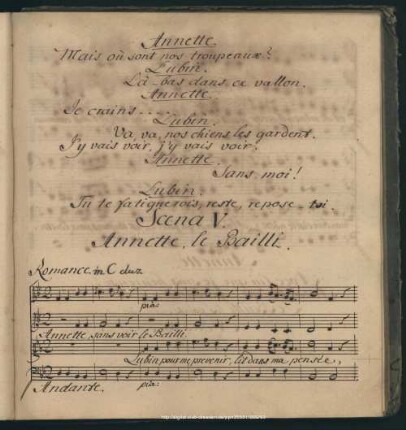 Annette.
Mais où sont nos troupeaux?
Lubin.
Là-bas dans ce vallon.
Annette.
Je crains...
Lubin.
Va, va, nos chiens les gardent.
J'y vais voir, j'y vais voir!
Annette.
Sans moi!
Lubin.
Tu te fatiguerois, reste, repose-toi
Scena V.
Annette, le Bailli.
Romance, in C dur
pia:
Annette, sans voir le Bailli.
Lubin pour me prevenir, lit dans ma pensée,
Andante. pia: